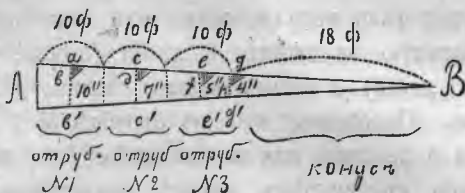 10 ф 10 ф 10 ф 18 ф
a c e g
A в 10" д 7" f 5" h 4" B
в' c' e' g'
отруб. отруб отруб. конусъ
N1 N2 N3